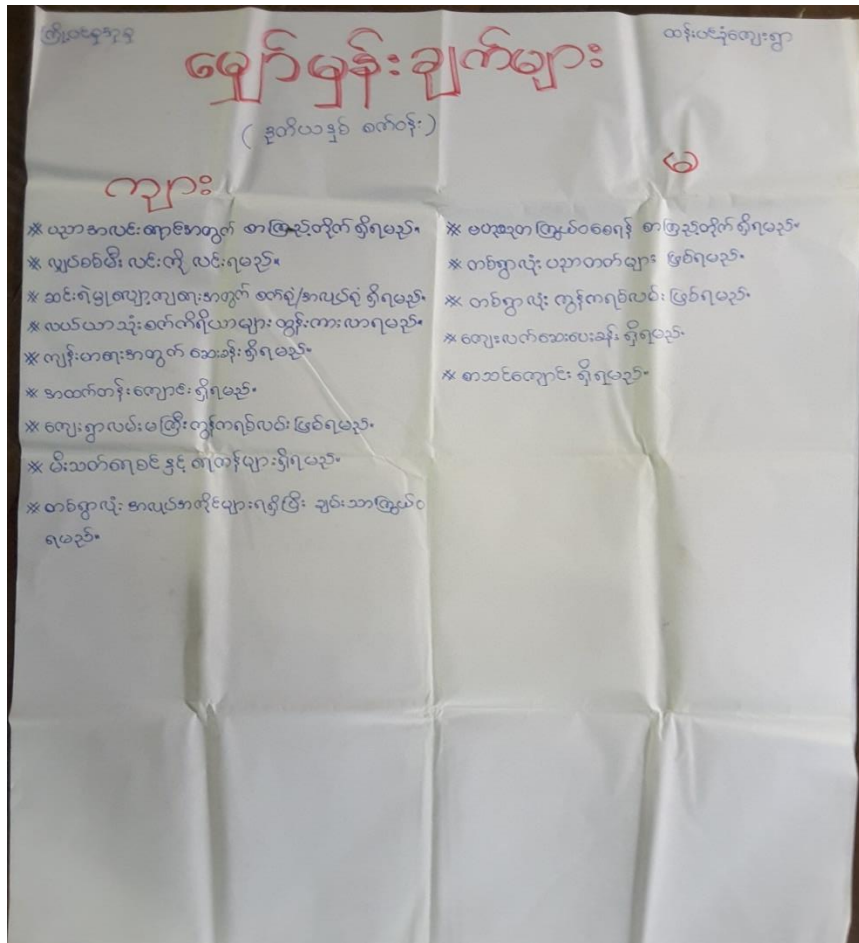 ကြို့ပင်စုအုပ်စု
ထန်းပင်ခုံကျေးရွာ
မျှော်မှန်းချက်များ
( ဒုတိယနှစ် စက်ဝန်း )
ကျား
※ ပညာအလင်းရောင်အတွက် စာကြည့်တိုက် ရှိရမည်။
※ လျှပ်စစ်မီး လင်းကို လင်းရမည်။
※ ဆင်းရဲမှုလျော့ကျရေးအတွက် စက်ရုံ/အလုပ်ရုံ ရှိရမည်။
※ လယ်ယာသုံးစက်ကိရိယာများ တွန်းကားလာရမည်။
※ ကျန်းမာရေးအတွက် ဆေးခန်း ရှိရမည်။
※ အထက်တန်းကျောင်း ရှိရမည်။
※ ကျေးရွာလမ်းမကြီး ကွန်ကရစ်လမ်း ဖြစ်ရမည်။
※ မီးသတ်ရေစင် နှင့် ရေကန်များရှိရမည်။
※ တစ်ရွာလုံး အလုပ်အကိုင်များရရှိပြီး ချမ်းသာကြွယ်ဝ
ရမည်။
မ
※ ဗဟုသုတ ကြွယ်ဝစေရန် စာကြည့်တိုက် ရှိရမည်။
※ တစ်ရွာလုံး ပညာတတ်များ ဖြစ်ရမည်။
※ တစ်ရွာလုံး ကွန်ကရစ်လမ်း ဖြစ်ရမည်။
※ ကျေးလက်ဆေးပေးခန်း ရှိရမည်။
※ စာသင်ကျောင်း ရှိရမည်။